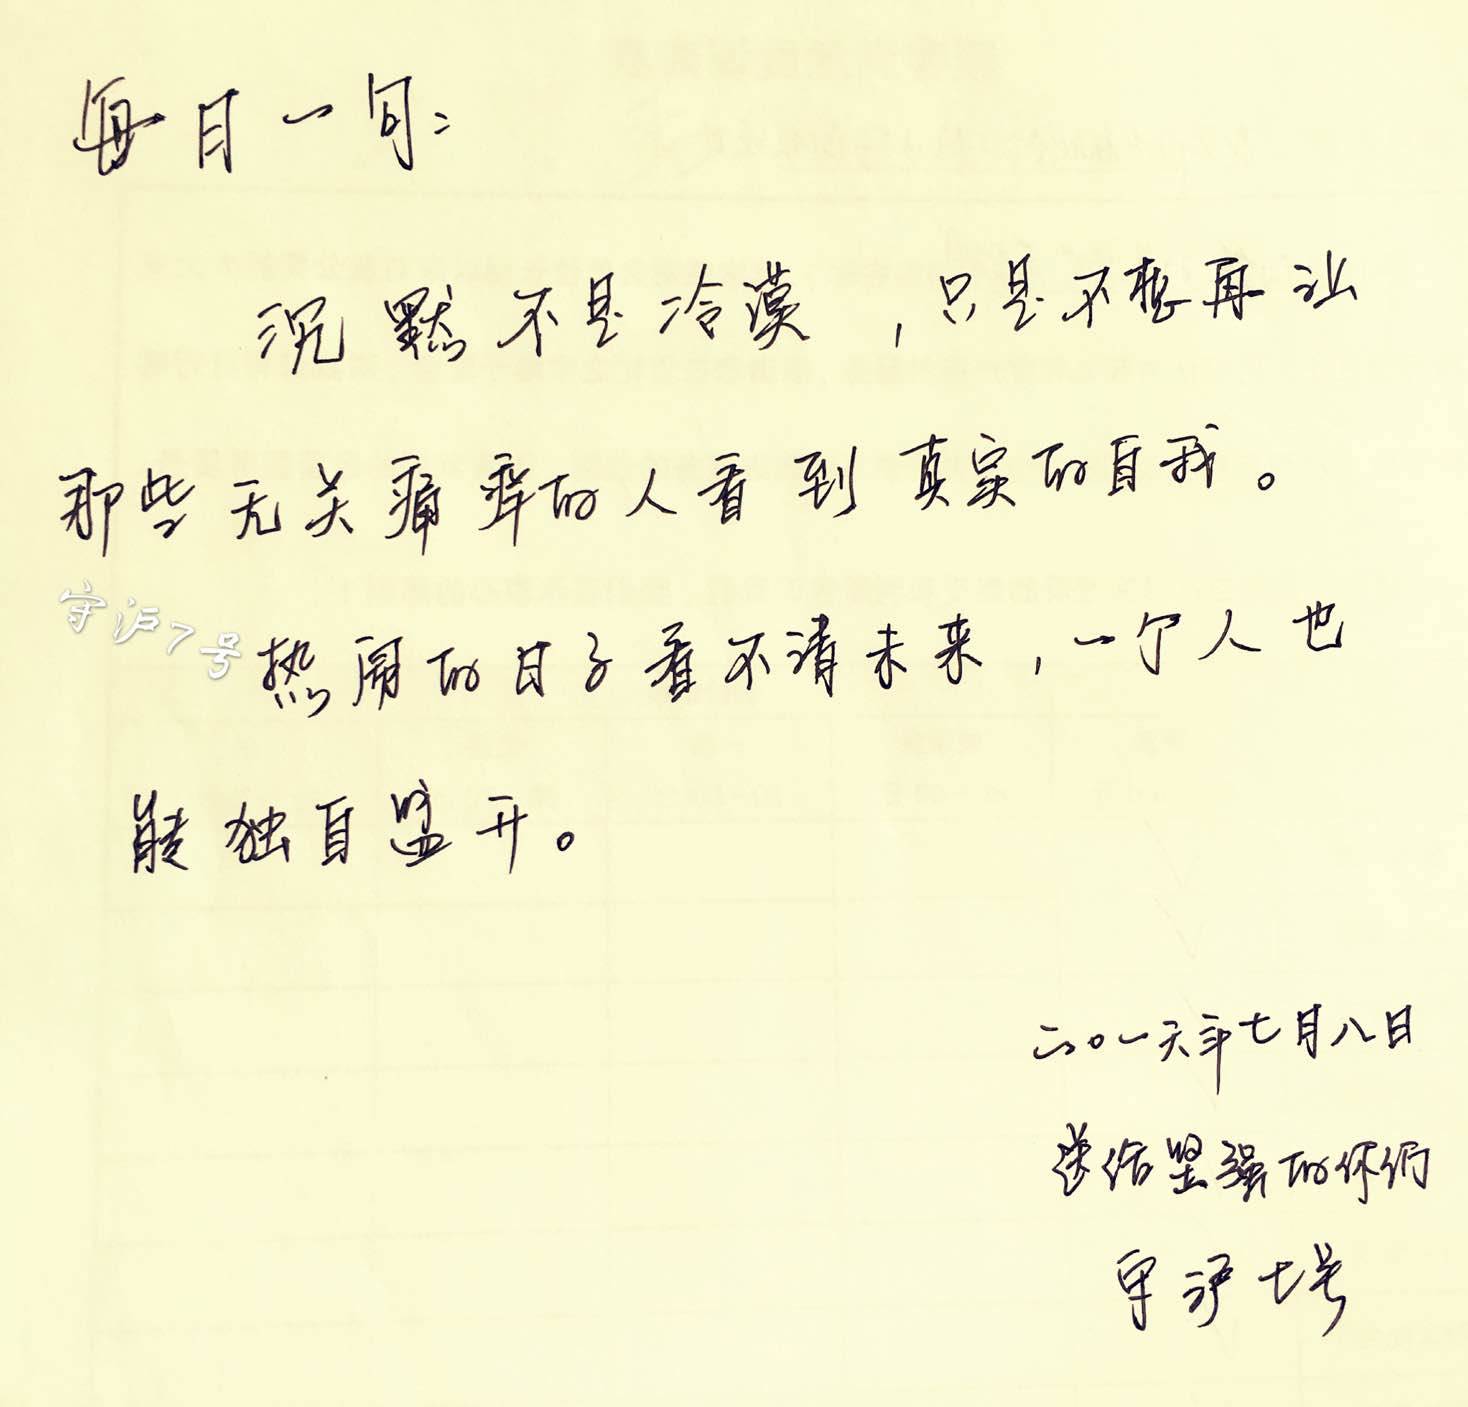 每日一句：
沉默不是冷漠，只是不想再让
那些无关痛痒的人看到真实的自我。
守沪7号
热闹的日子看不清未来，一个人也
能独自盛开。
二〇一六年七月八日
送给坚强的你们
守沪七号